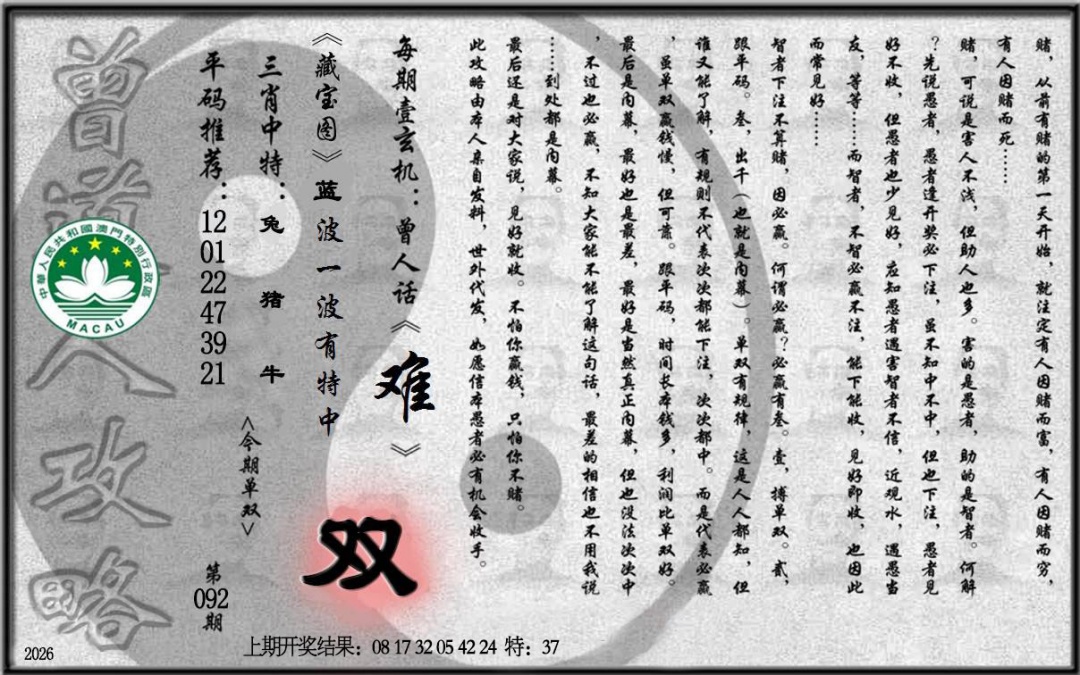 赌，从前有赌的第一天开始，就注定有人因赌而富，有人因赌而穷，
有人因赌而死……
赌，可说是害人不浅，但助人也多。害的是愚者，助的是智者。何解
？先说愚者，愚者逢开奖必下注，虽不知中不中，但也下注，愚者见
好不收，但愚者也少见好，应知愚者遇害智者不信，近观水，遇愚当
友，等等……而智者，不智必赢不注，能下能收，见好即收，也因此
而常见好……
智者下注不算赌，因必赢。何谓必赢？必赢有叁。壹，搏单双。贰，
跟平码。叁，出千（也就是内幕）。单双有规律，这是人人都知，但
谁又能了解，有规则不代表次次都能下注，次次都中。而是代表必赢
，虽单双赢钱慢，但可靠。跟平码，时间长本钱多，利润比单双好。
最后是内幕，最好也是最差，最好是当然真正内幕，但也没法次次中
，不过也必赢，不知大家能不能了解这句话，最差的相信也不用我说
……到处都是内幕。
最后还是对大家说，见好就收。不怕你赢钱，只怕你不赌。
此攻略由本人亲自发料，世外代发，如愿信本愚者必有机会收手。
每期壹玄机：曾人话《难》
《藏宝图》蓝波一波有特中
双
三肖中特：兔 猪 牛
<今期单双>
平码推荐：12 01 22 47 39 21
第092期
曾道人攻略
中華人民共和國澳門特別行政區
MACAU
上期开奖结果：08 17 32 05 42 24 特：37
2026